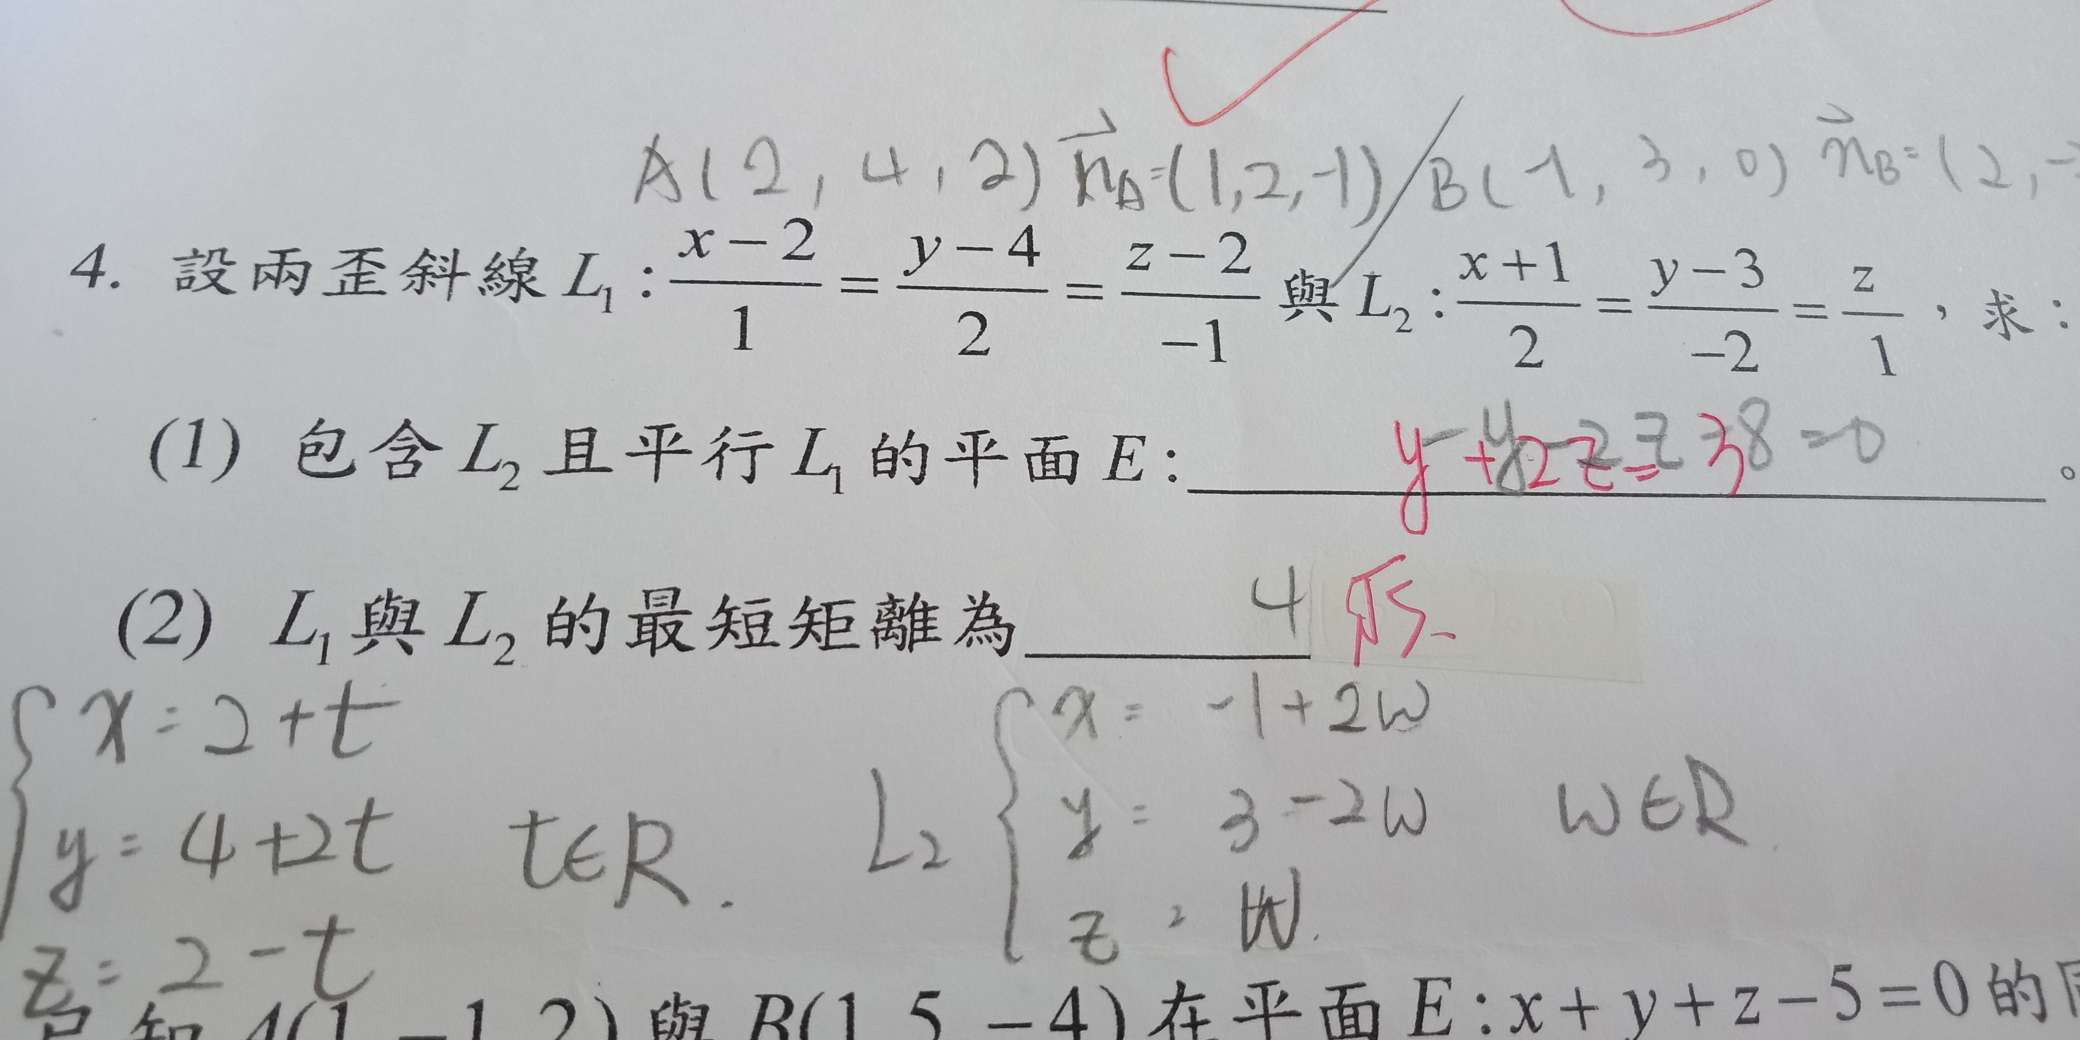 A(2, 4, 2) n_A=(1,2,-1) / B(-1, 3, 0) n_B=(2,-
4. 設兩歪斜線 L₁ : (x-2)/1 = (y-4)/2 = (z-2)/-1 與 L₂ : (x+1)/2 = (y-3)/-2 = z/1 , 求:
(1) 包含 L₂ 且平行 L₁ 的平面 E: y+2z=3 8=0 。
(2) L₁ 與 L₂ 的最短矩離為 4 √5
x=2+t x= -1+2w
y=4+2t t∈R. L₂ y= 3-2w w∈R
z=2-t z= w.
A(1 -1 2) 與 B(1 5 -4) 在平面 E:x+y+z-5=0 的